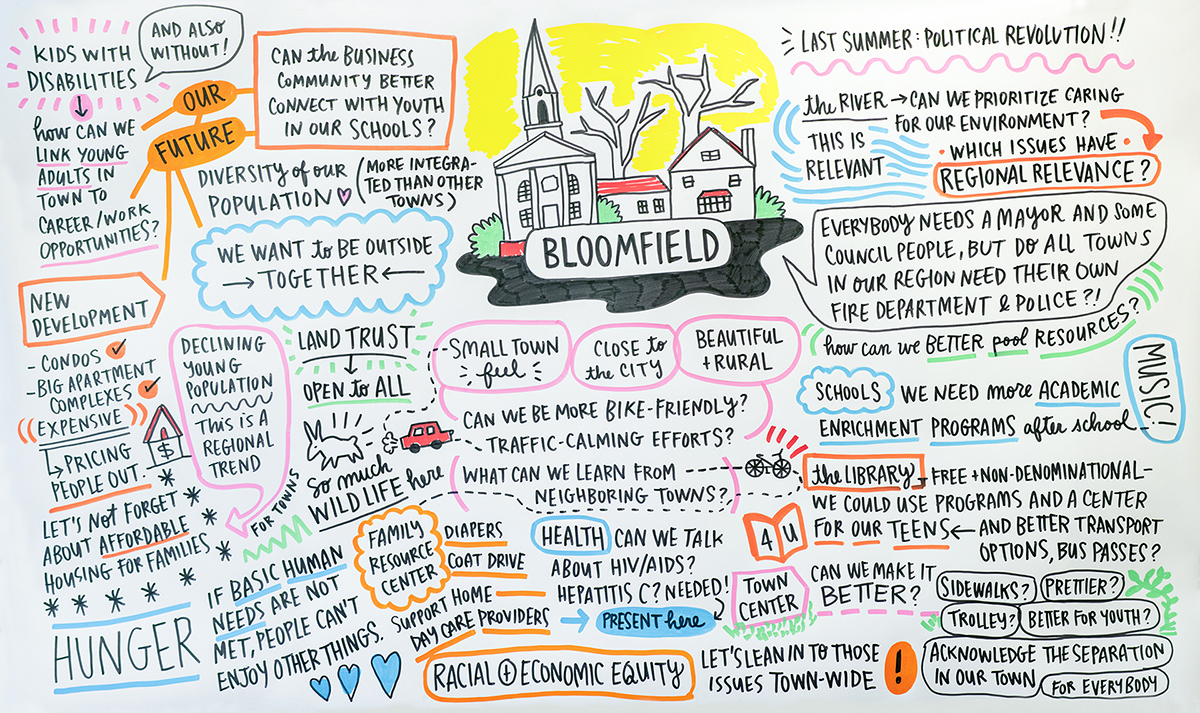 KIDS WITH
DISABILITIES
AND ALSO
WITHOUT!
how CAN WE
LINK YOUNG
ADULTS IN
TOWN TO
CAREER/WORK
OPPORTUNITIES?
OUR
FUTURE
CAN the BUSINESS
COMMUNITY BETTER
CONNECT WITH YOUTH
IN OUR SCHOOLS?
DIVERSITY of OUR
POPULATION
(MORE INTEGRA-
TED THAN OTHER
TOWNS)
WE WANT to BE OUTSIDE
→ TOGETHER ←
BLOOMFIELD
LAST SUMMER: POLITICAL REVOLUTION!!
the RIVER → CAN WE PRIORITIZE CARING
FOR OUR ENVIRONMENT?
THIS IS
RELEVANT
• WHICH ISSUES HAVE •
REGIONAL RELEVANCE?
EVERYBODY NEEDS A MAYOR AND SOME
COUNCIL PEOPLE, BUT DO ALL TOWNS
IN OUR REGION NEED THEIR OWN
FIRE DEPARTMENT & POLICE?!
how can we BETTER pool RESOURCES?
NEW
DEVELOPMENT
- CONDOS
- BIG APARTMENT
COMPLEXES
((EXPENSIVE))
PRICING
PEOPLE OUT.
$
LET'S NOT FORGET
ABOUT AFFORDABLE
HOUSING FOR FAMILIES
HUNGER
DECLINING
YOUNG
POPULATION
THIS IS A
REGIONAL
TREND
FOR TOWNS
LAND TRUST
OPEN to ALL
so much
WILD LIFE here
SMALL TOWN
feel
CLOSE to
the CITY
BEAUTIFUL
+ RURAL
CAN WE BE MORE BIKE-FRIENDLY?
TRAFFIC-CALMING EFFORTS?
WHAT CAN WE LEARN FROM
NEIGHBORING TOWNS?
SCHOOLS
WE NEED more ACADEMIC
ENRICHMENT PROGRAMS after school
MUSIC!
the LIBRARY - FREE + NON-DENOMINATIONAL -
WE COULD USE PROGRAMS AND A CENTER
FOR OUR TEENS ← AND BETTER TRANSPORT
OPTIONS, BUS PASSES?
4 U
IF BASIC HUMAN
NEEDS ARE NOT
MET, PEOPLE CAN'T
ENJOY OTHER THINGS.
FAMILY
RESOURCE
CENTER
DIAPERS
COAT DRIVE
SUPPORT HOME
DAY CARE PROVIDERS
HEALTH
CAN WE TALK
ABOUT HIV/AIDS?
HEPATITIS C? NEEDED!
→ PRESENT here
TOWN
CENTER
CAN WE MAKE IT
BETTER?
SIDEWALKS?
PRETTIER?
TROLLEY?
BETTER FOR YOUTH?
ACKNOWLEDGE THE SEPARATION
IN OUR TOWN
FOR EVERYBODY
RACIAL + ECONOMIC EQUITY
LET'S LEAN IN TO THOSE
ISSUES TOWN-WIDE
!